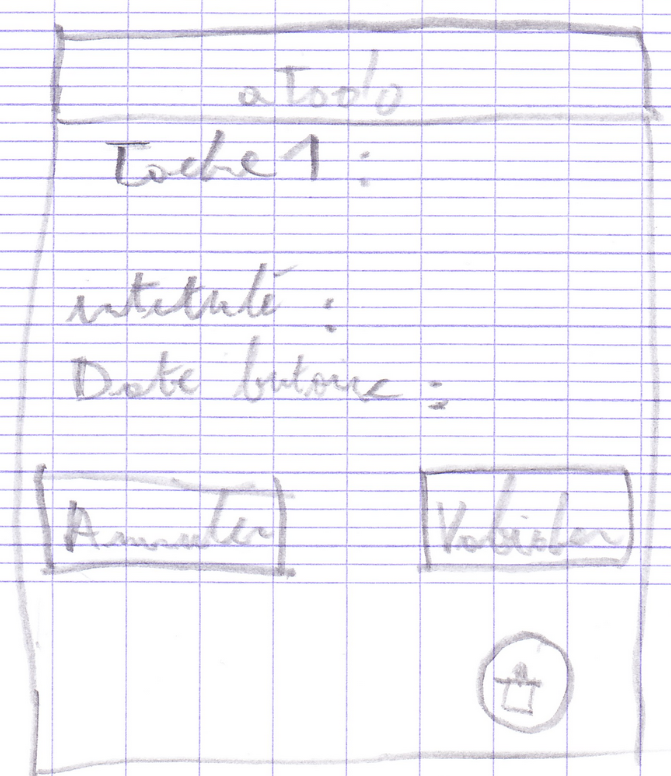 aTodo
Tache 1 :
intitulé :
Date butoire :
Annuler Valider